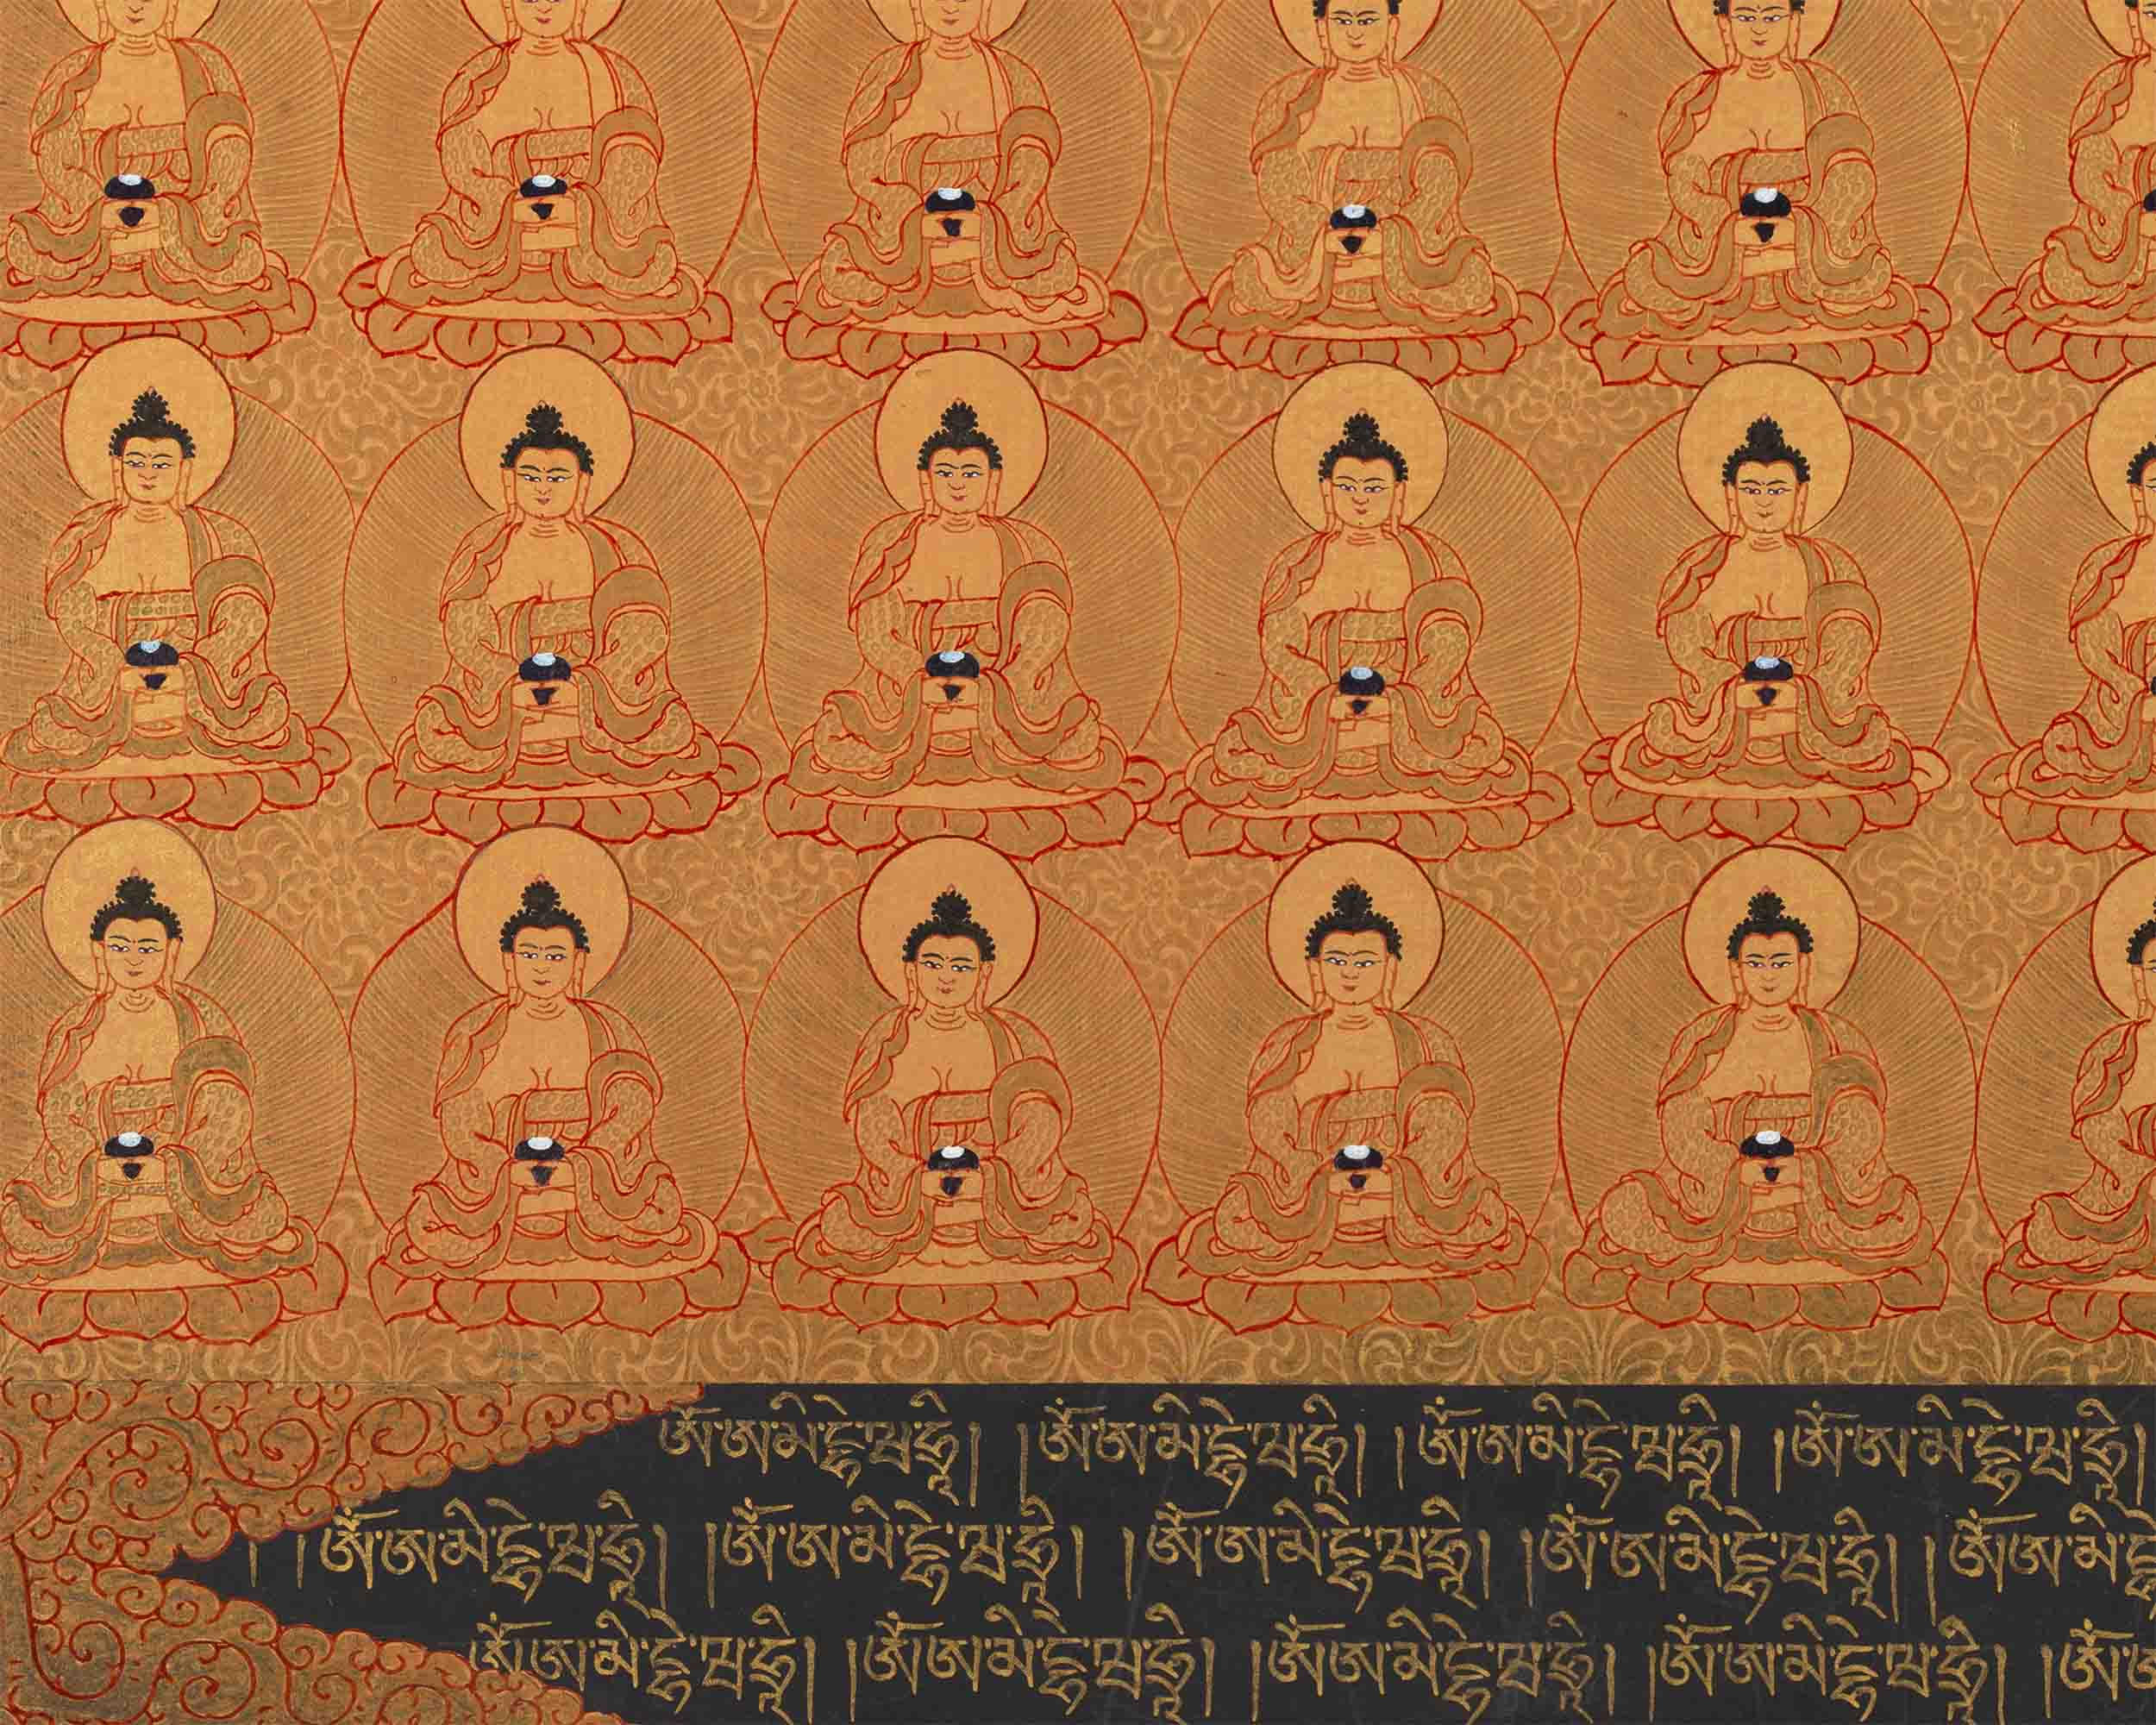 ཨོཾ་ཨ་མི་དྷེ་ཝ་ཧྲཱི། །ཨོཾ་ཨ་མི་དྷེ་ཝ་ཧྲཱི། །ཨོཾ་ཨ་མི་དྷེ་ཝ་ཧྲཱི། །ཨོཾ་ཨ་མི་དྷེ་ཝ་ཧྲཱི།
། །ཨོཾ་ཨ་མི་དྷེ་ཝ་ཧྲཱི། །ཨོཾ་ཨ་མི་དྷེ་ཝ་ཧྲཱི། །ཨོཾ་ཨ་མི་དྷེ་ཝ་ཧྲཱི། །ཨོཾ་ཨ་མི་དྷེ་ཝ་ཧྲཱི། །ཨོཾ་ཨ་མི་
ཨོཾ་ཨ་མི་དྷེ་ཝ་ཧྲཱི། །ཨོཾ་ཨ་མི་དྷེ་ཝ་ཧྲཱི། །ཨོཾ་ཨ་མི་དྷེ་ཝ་ཧྲཱི། །ཨོཾ་ཨ་མི་དྷེ་ཝ་ཧྲཱི། །ཨོཾ་